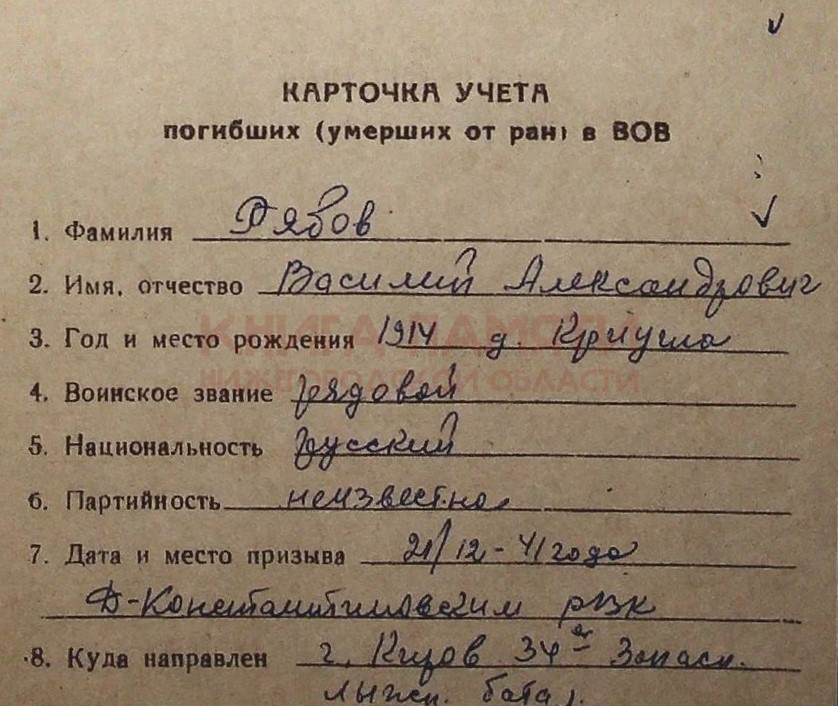 КАРТОЧКА УЧЕТА
погибших (умерших от ран) в ВОВ
1. Фамилия Рябов
2. Имя, отчество Василий Александрович
3. Год и место рождения 1914 д. Криуша
КНИГА ПАМЯТИ
НИЖЕГОРОДСКОЙ ОБЛАСТИ
4. Воинское звание рядовой
5. Национальность русский
6. Партийность неизвестно
7. Дата и место призыва 21/12-41 года
Д-Константиновским рвк
8. Куда направлен г. Киров 34 Запасн.
лыжн. бата